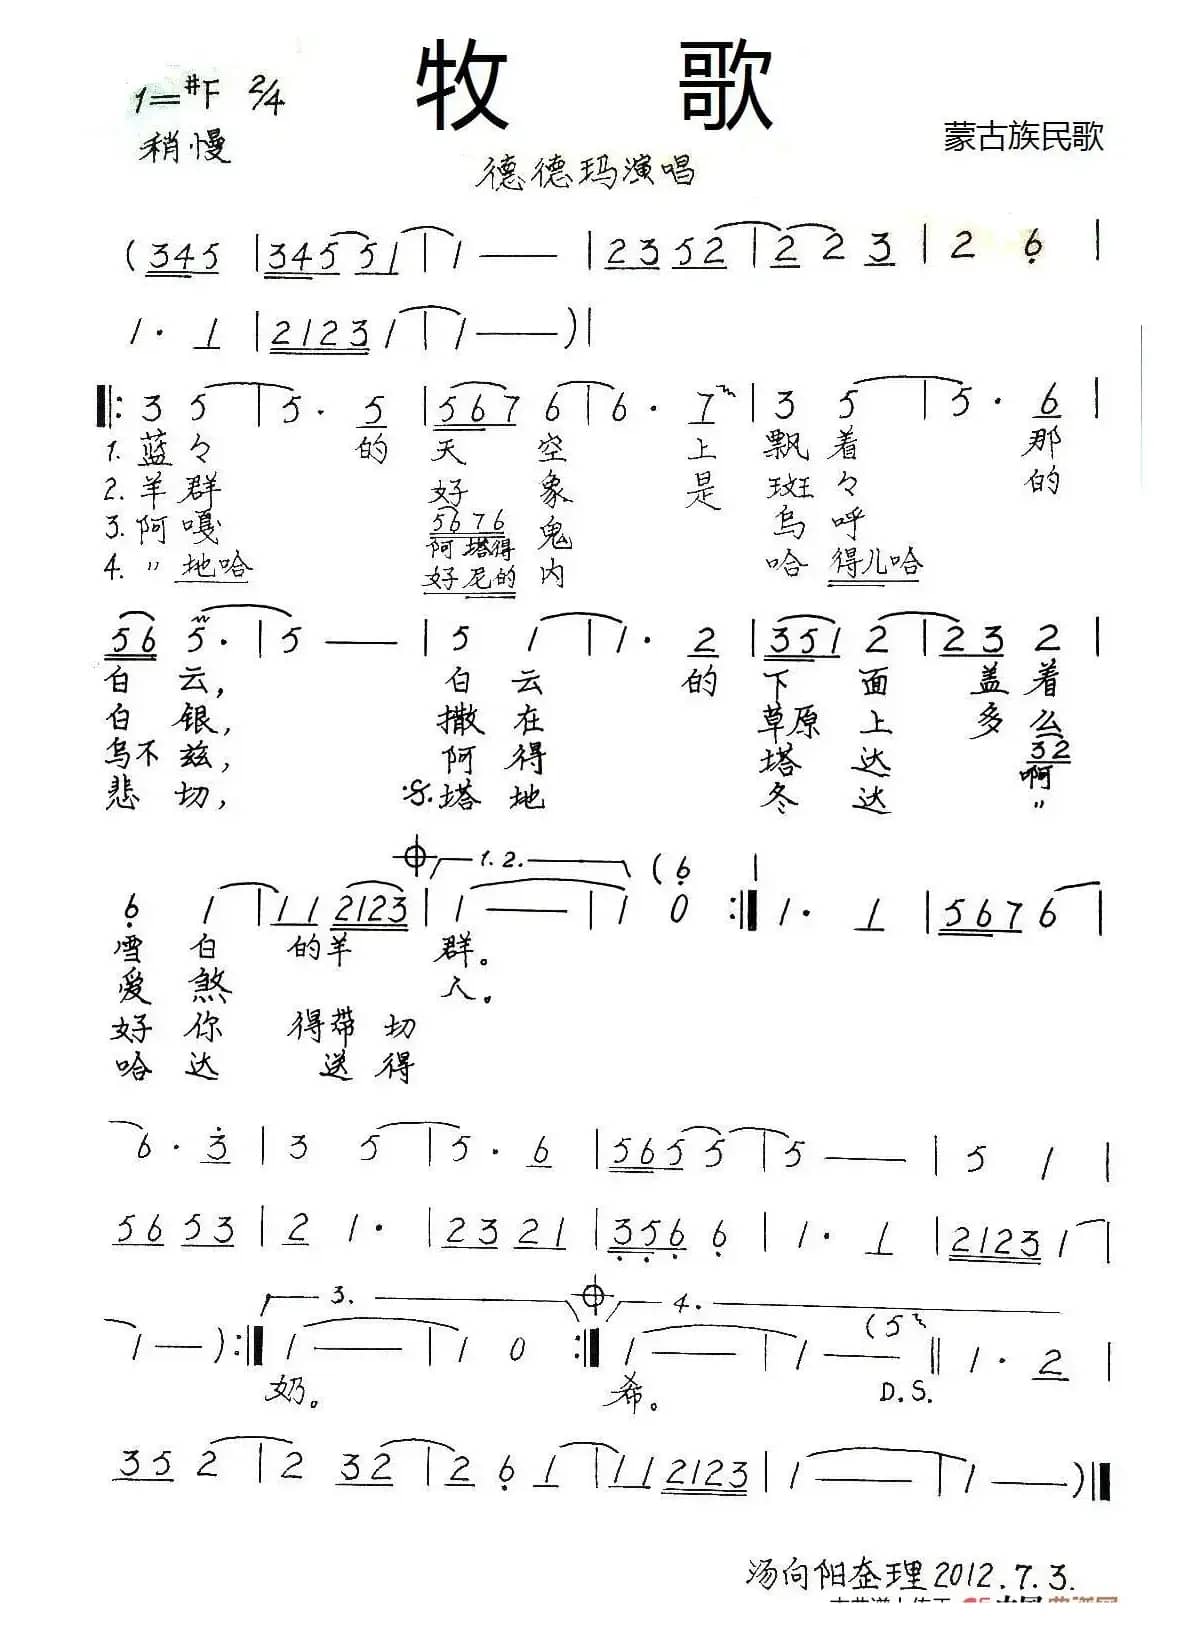 牧 歌
1=#F 2/4
稍慢
蒙古族民歌
德德玛演唱
(345 | 34551 | 1 — | 2352 | 2 2 3 | 2 6 |
1· 1 | 2123 1 | 1 — ) |
‖: 3 5 | 5· 5 | 567 6 | 6· 7 | 3 5 | 5· 6 |
1. 蓝々 的 天 空 上 飘 着 那
2. 羊群 好 象 是 斑々 的
3. 阿嘎 5676 鬼 乌呼
阿塔得
4. 〃地哈 好尼的 内 哈 得儿哈
56 5· | 5 — | 5 1 | 1· 2 | 351 2 | 23 2 |
白 云, 白 云 的 下 面 盖 着
白 银, 撒 在 草原 上 多 么
乌不 兹, 阿 得 塔 达 32 啊
悲 切, :S. 塔 地 冬 达 〃
1. 2. (6 |
6 1 | 11 2123 | 1 — | 1 0 :‖ 1· 1 | 567 6 |
雪 白 的羊 群。
爱 煞 人。
好 你 得带 切
哈 达 送 得
6· 3 | 3 5 | 5· 6 | 5655 | 5 — | 5 1 |
56 53 | 2 1· | 23 21 | 356 6 | 1· 1 | 2123 1 |
3. 4.
1 — ) :‖ 1 — | 1 0 :‖ 1 — | 1 — (5 ‖ 1· 2 |
奶。 希。 D.S.
35 2 | 2 32 | 2 6 1 | 11 2123 | 1 — | 1 — ) ‖
汤向阳整理2012.7.3.